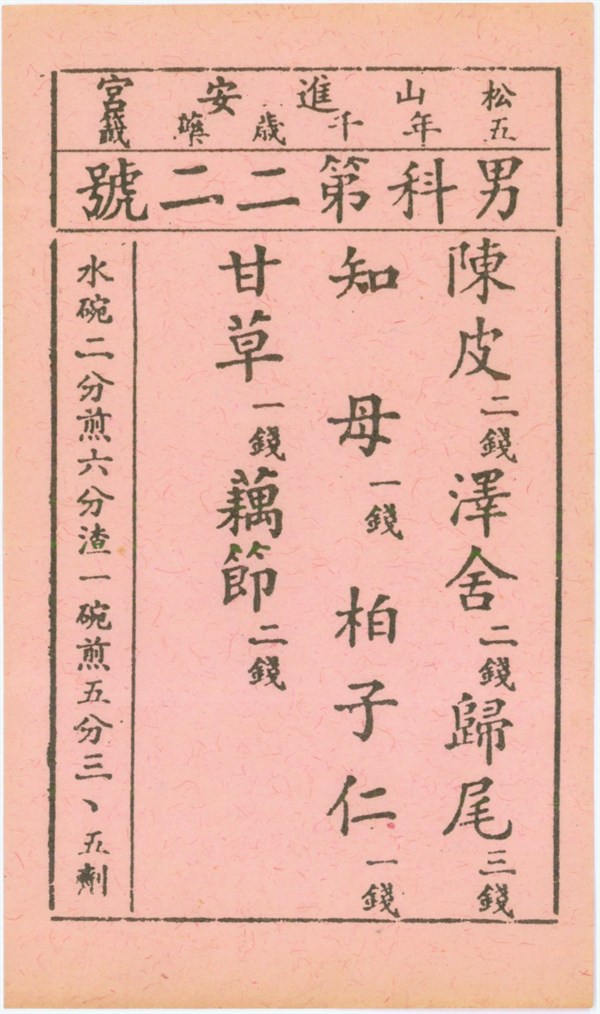 松山進安宮
五年千歲藥籤
男科第二二號
陳皮二錢澤舍二錢歸尾三錢
知母一錢柏子仁一錢
甘草一錢藕節二錢
水碗二分煎六分渣一碗煎五分三、五劑